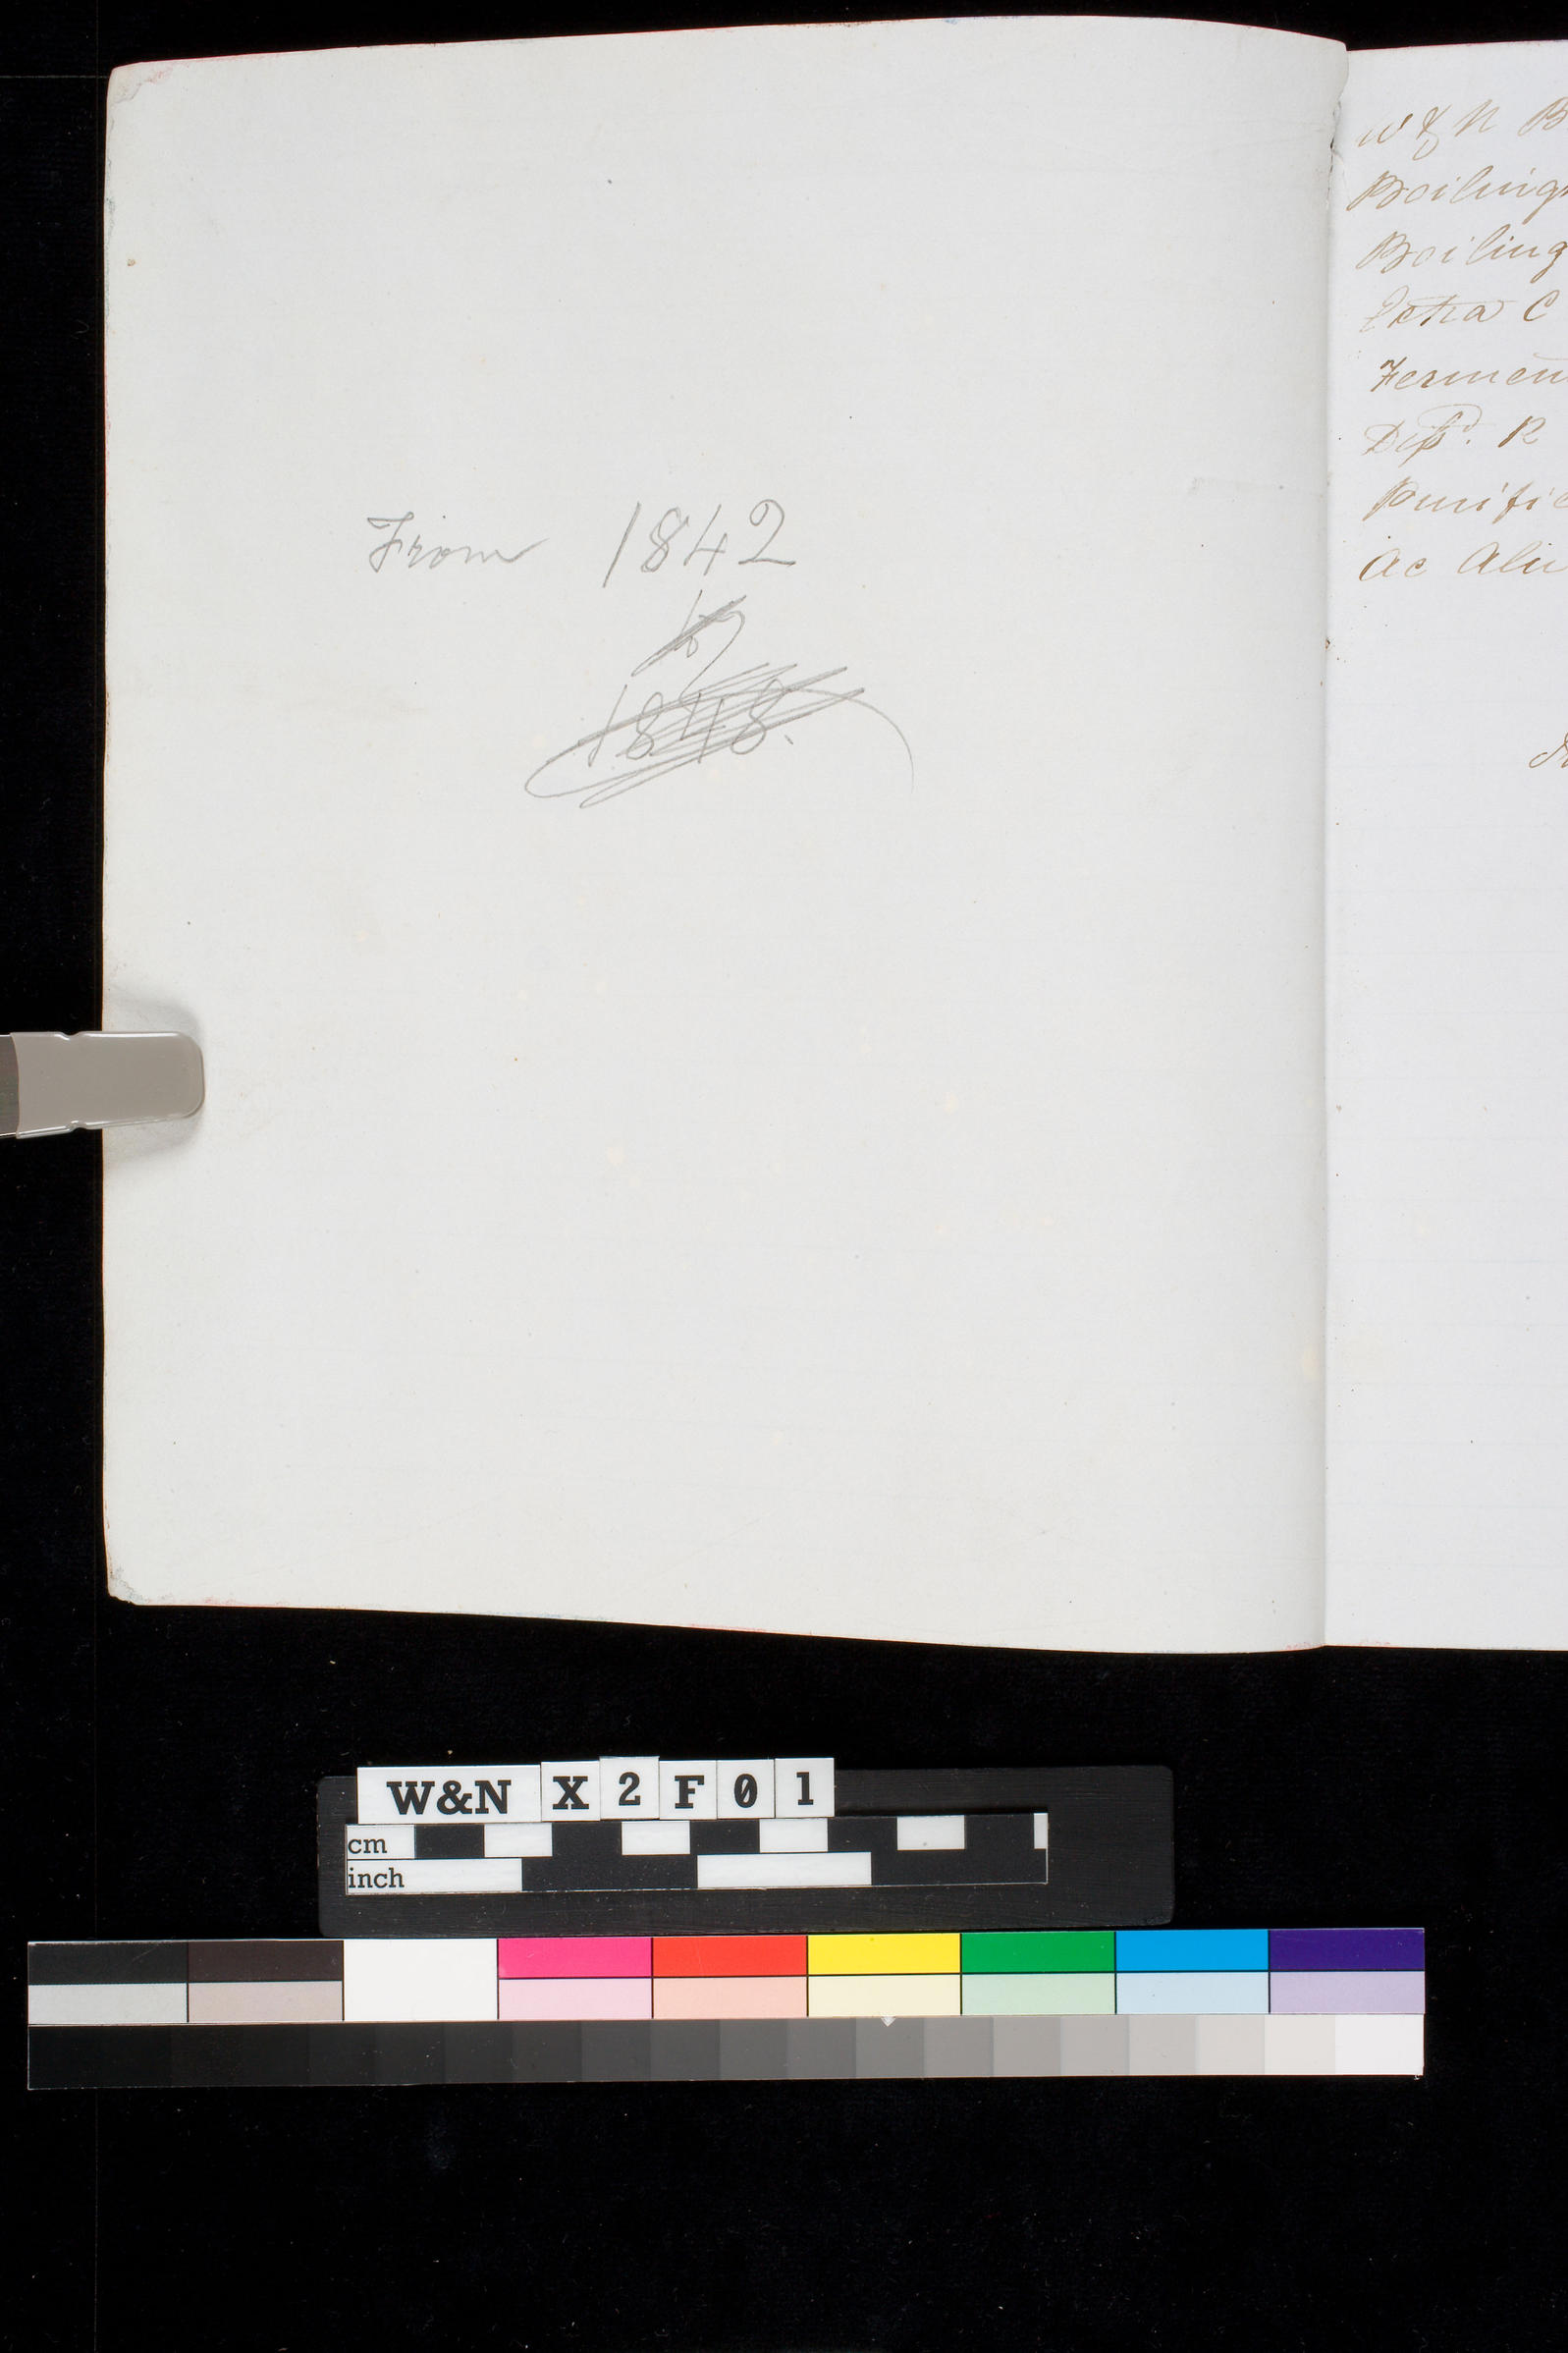 From 1842
to
1848.
W & N B
Boilings
Boiling
Extra C
Fermen
Dis^d. R
Purific
Ac Alu
W&N X 2 F 0 1
cm
inch